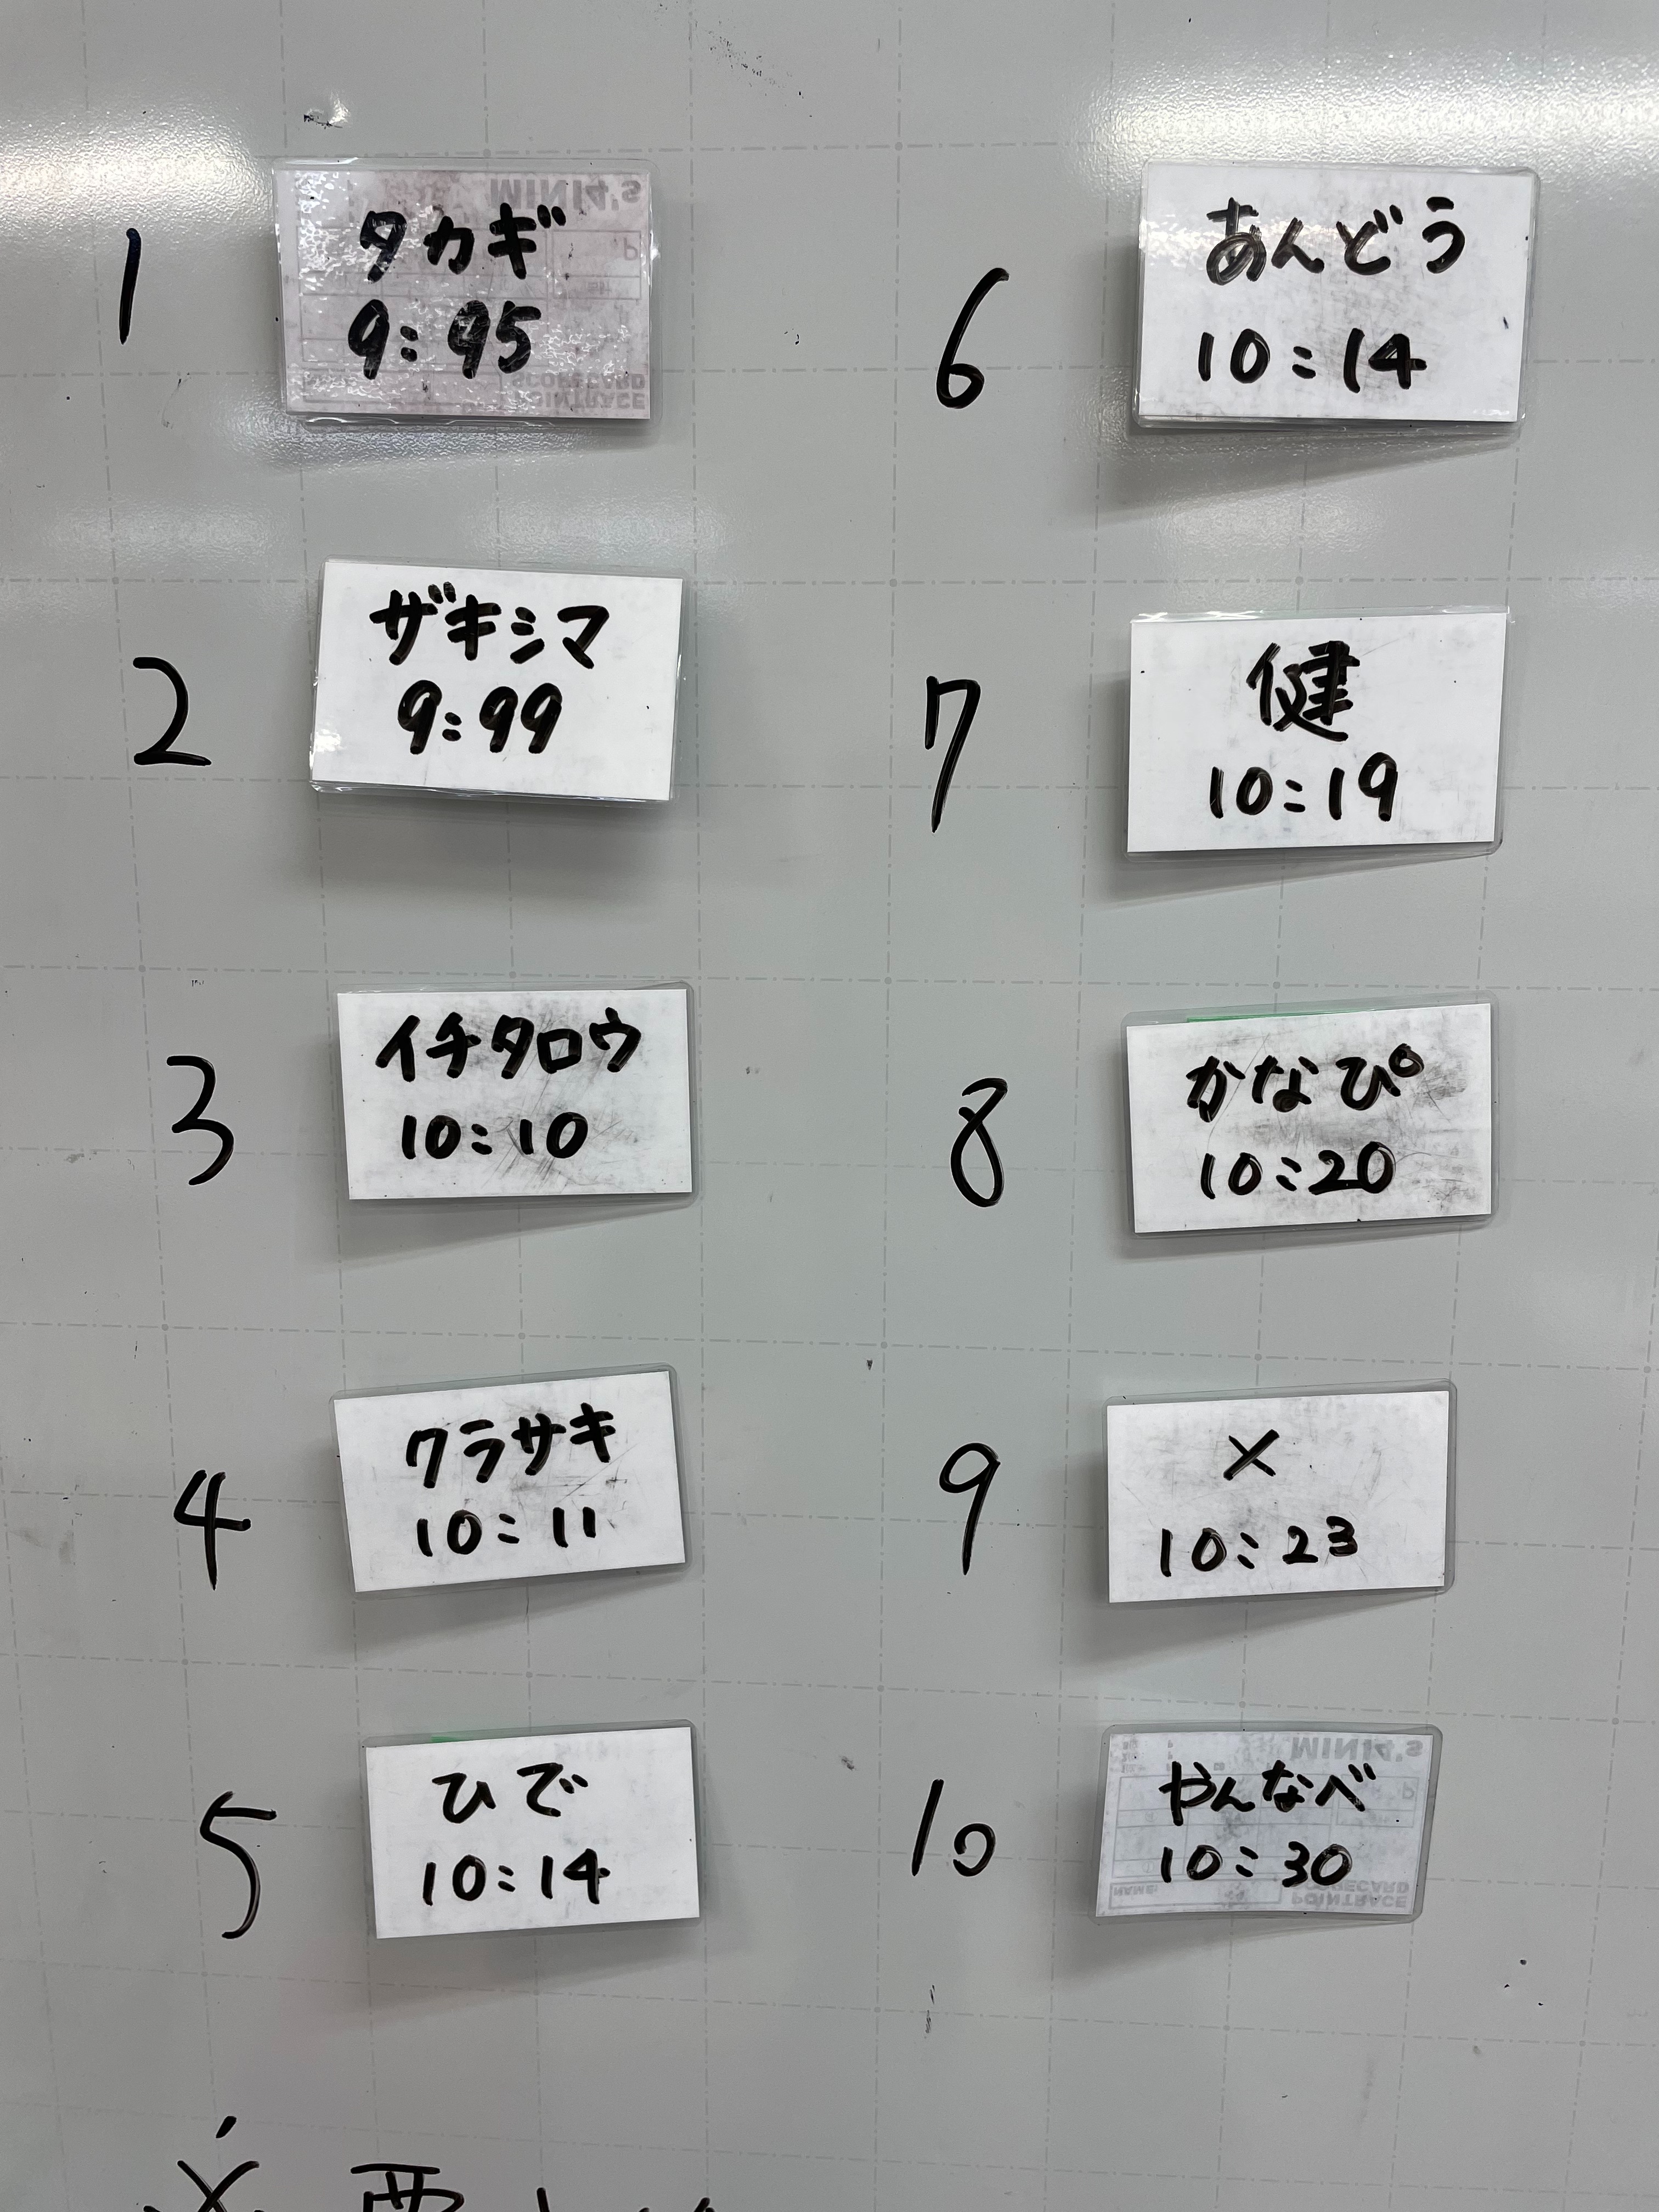 1
タカギ
9:95
2
ザキシマ
9:99
3
イチタロウ
10:10
4
クラサキ
10:11
5
ひで
10:14
6
あんどう
10:14
7
健
10:19
8
かなぴ
10:20
9
×
10:23
10
やんなべ
10:30
MINI4's
POINTRACE
SCORECARD
NAME: